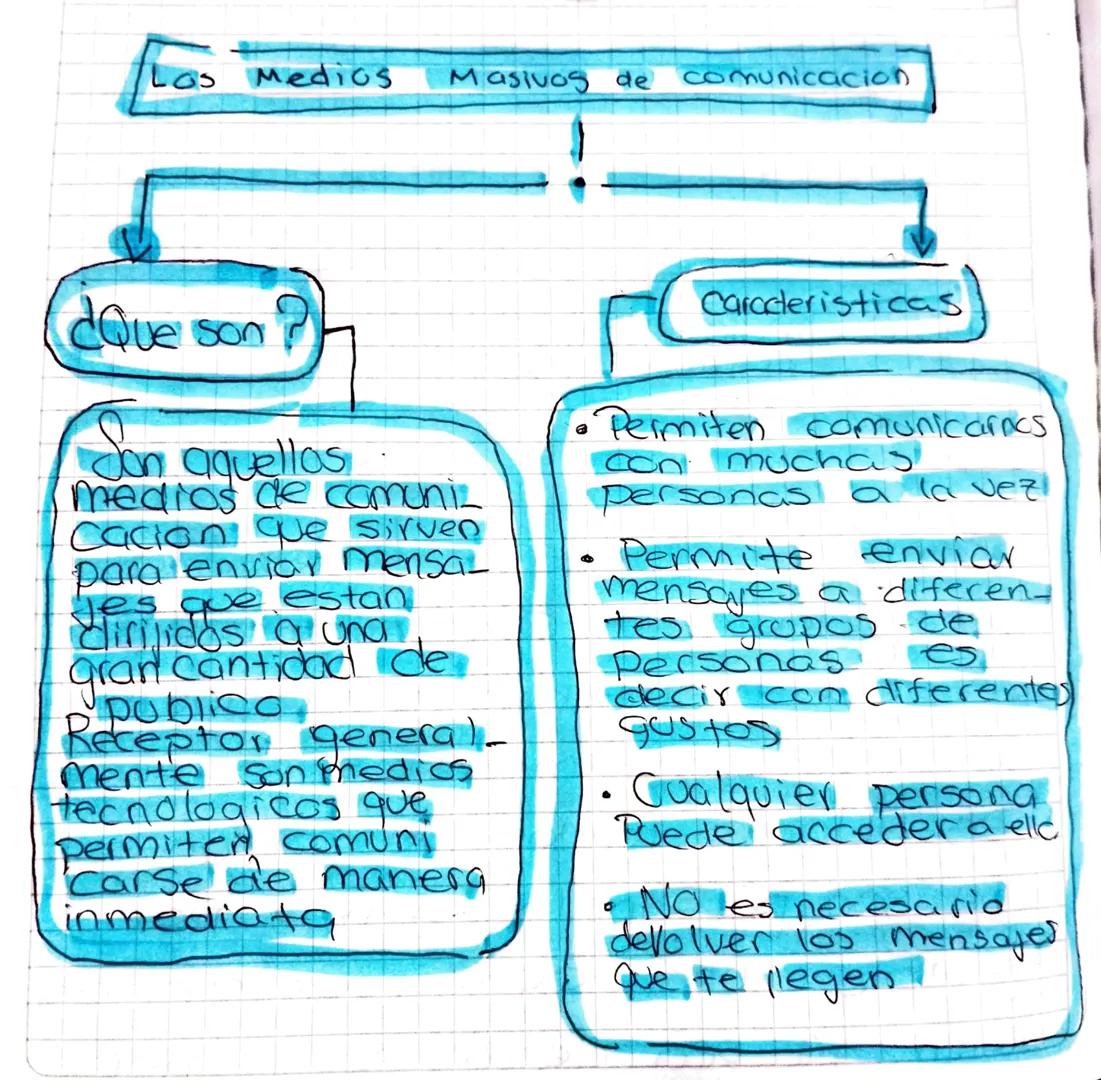 Los Medios Masivos de comunicacion
¿Que son?
Son aquellos
medios de comuni_
cacion que sirven
para enviar mensa_
jes que estan
dirijidos a una
gran cantidad de
publico
Receptor general_
mente son medios
tecnologicos que
permiten comuni
carse de manera
inmediata
caracteristicas
• Permiten comunicarnos
con muchas
personas a la vez
• Permite enviar
mensajes a diferen-
tes grupos de
personas es
decir con diferentes
gustos
• Cualquier persona
Puede acceder a ello
• NO es necesario
devolver los mensajes
que te llegen